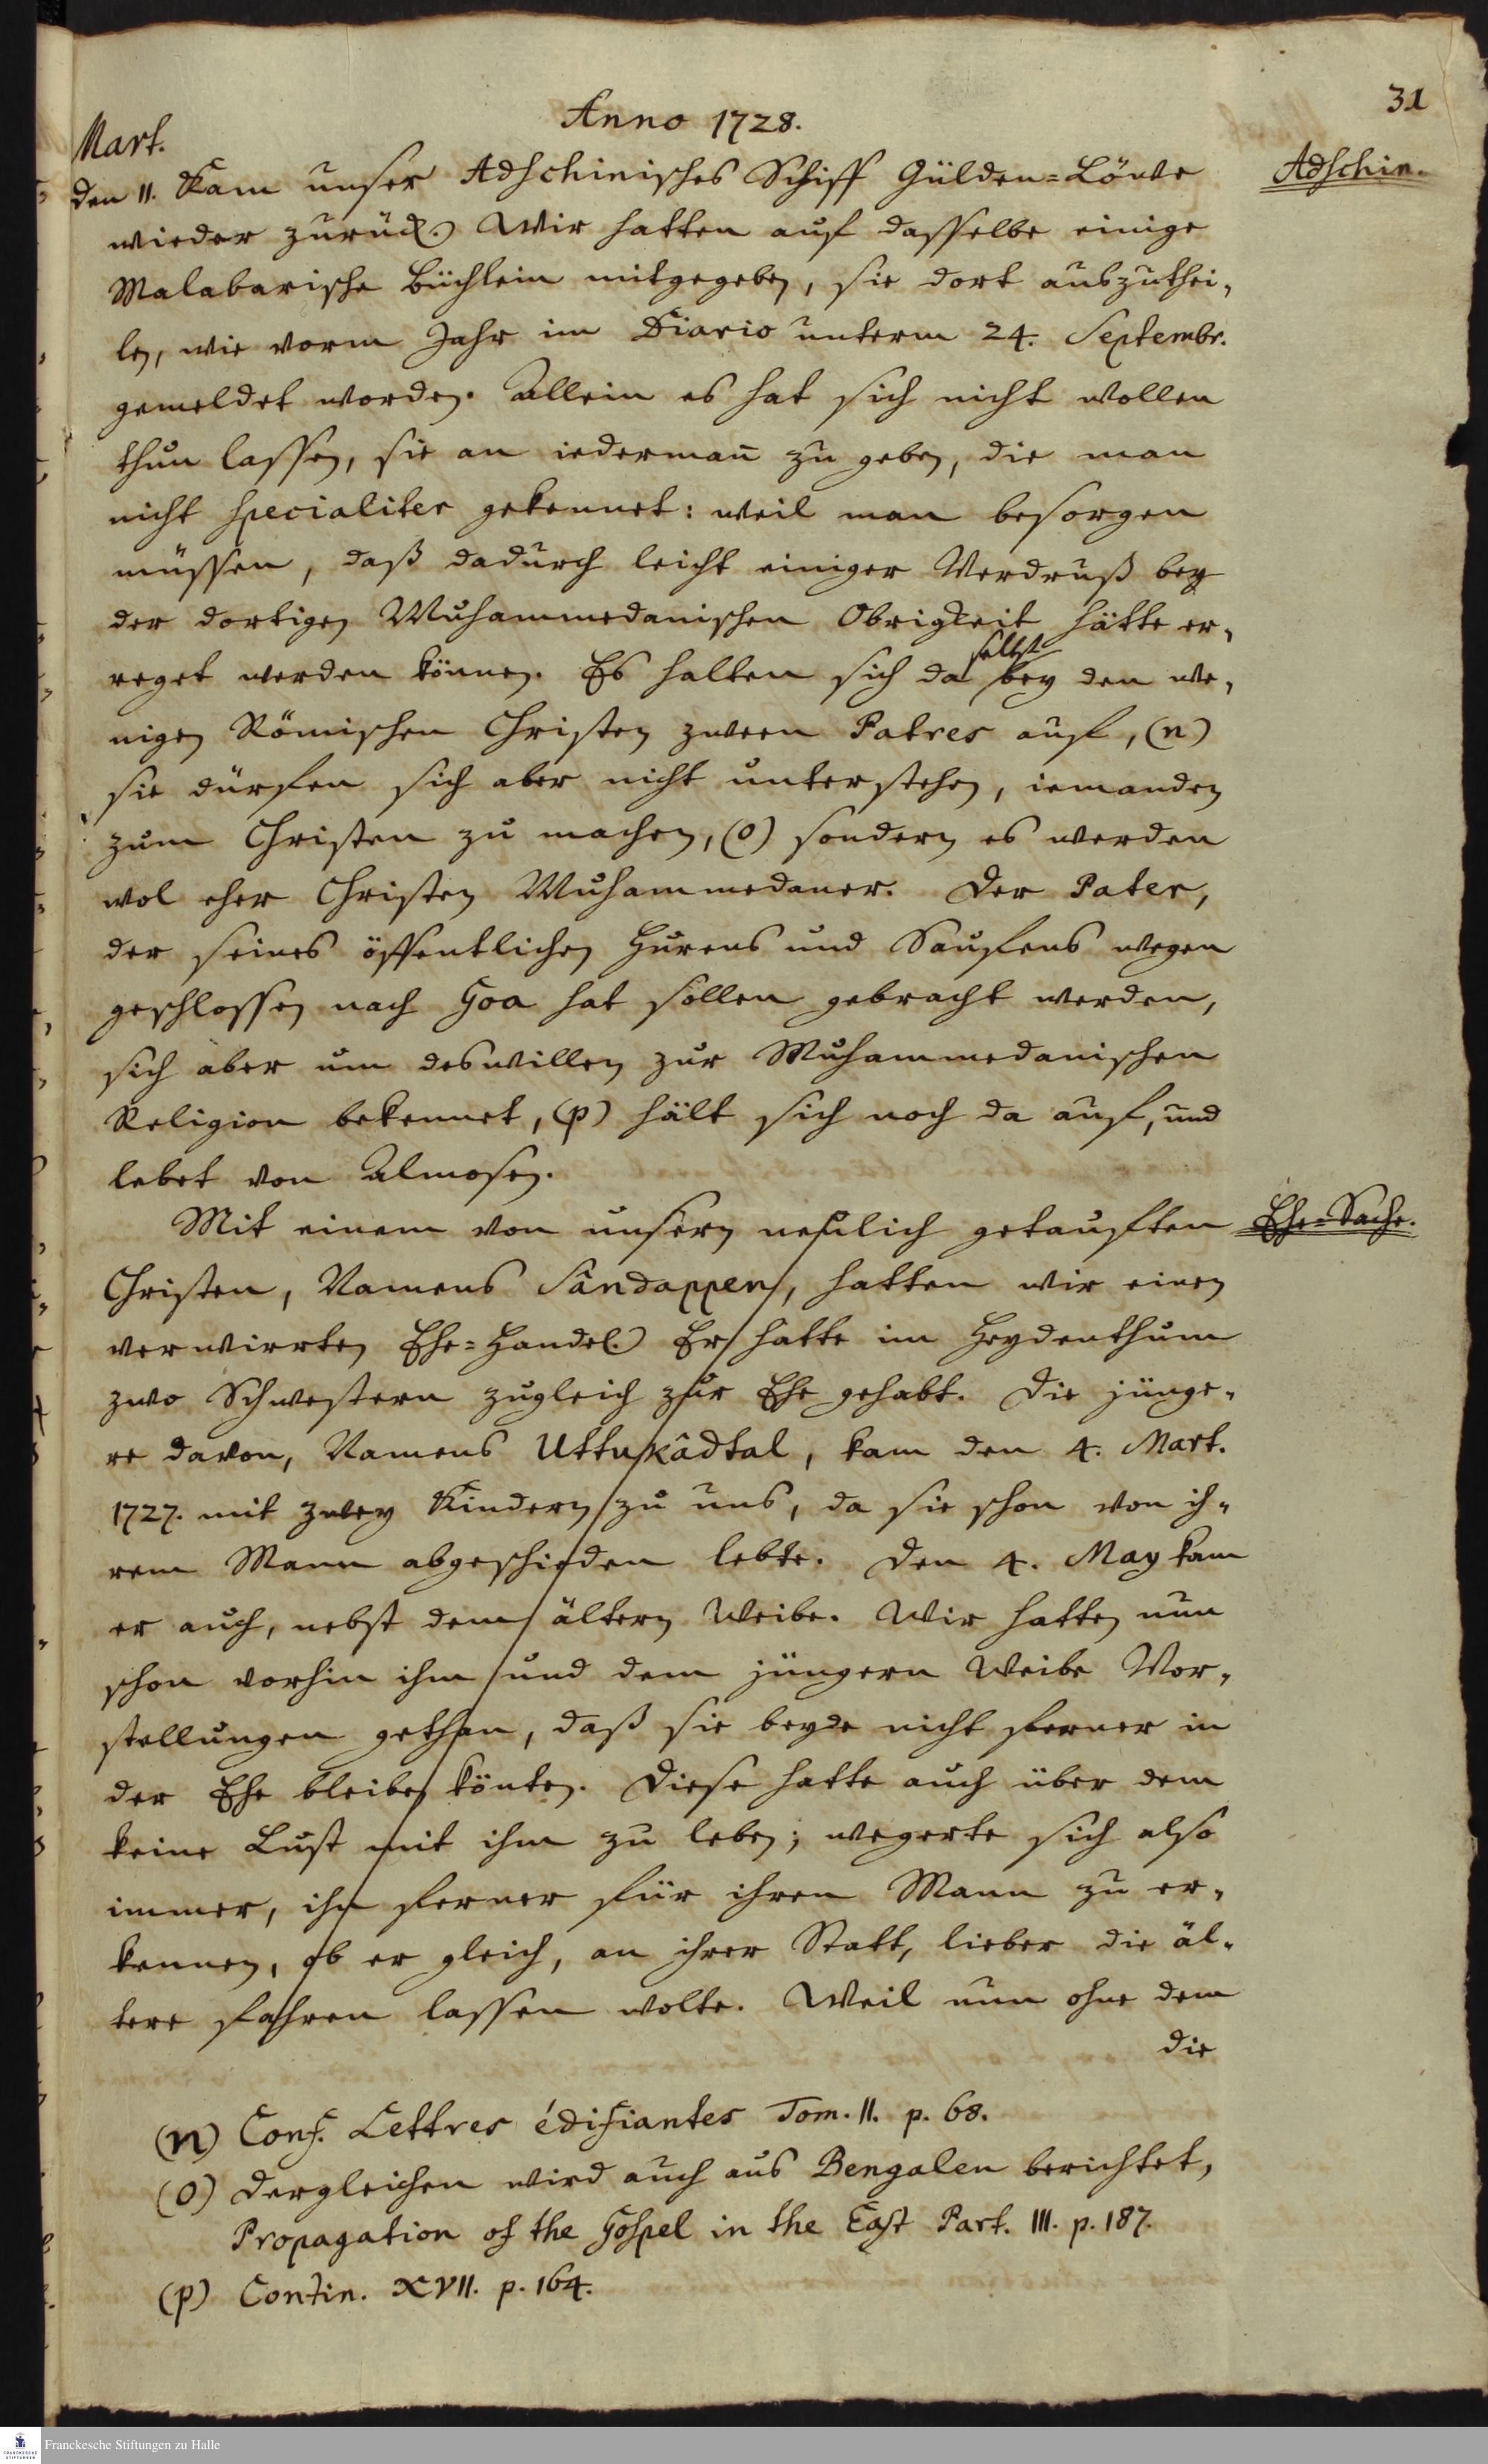 31
Anno 1728.
Mart.
den 11. Kam unser Adschinisches Schiff Gülden-Löwe
Adschin.
wieder zurück. Wir hatten auf dasselbe einige
Malabarische Büchlein mitgegeben, sie dort auszuthei-
len, wie vorm Jahr im Diario unterm 24. Septembr.
gemeldet worden. Allein es hat sich nicht wollen
thun lassen, sie an iedermañ zu geben, die man
nicht specialiter gekennet: weil man besorgen
müssen, daß dadurch leicht einiger Verdruß bey
der dortigen Muhammedanischen Obrigkeit hätte er-
reget werden können. Es halten sich daselbst bey den we-
nigen Römischen Christen zween Patres auf, (n)
sie dürfen sich aber nicht unterstehen, iemanden
zum Christen zu machen, (o) sondern es werden
wol eher Christen Muhammedaner. Der Pater,
der seines öffentlichen Hurens und Saufens wegen
geschlossen nach Goa hat sollen gebracht werden,
sich aber um deswillen zur Muhammedanischen
Religion bekennet, (p) hält sich noch da auf, und
lebet von Almosen.
Mit einem von unsern neulich getauften
Ehe-Sache.
Christen, Namens Sândappen, hatten wir einen
verwirrten Ehe-Handel. Er hatte im Heydenthum
zwo Schwestern zugleich zur Ehe gehabt. Die jünge-
re davon, Namens Uttukâdtal, kam den 4. Mart.
1727. mit zwey Kindern zu uns, da sie schon von ih-
rem Mann abgeschieden lebte. Den 4. May kam
er auch, nebst dem ältern Weibe. Wir hatten nun
schon vorhin ihm und dem jüngern Weibe Vor-
stellungen gethan, daß sie beyde nicht ferner in
der Ehe bleiben könten. Diese hatte auch über dem
keine Lust mit ihm zu leben; wegerte sich also
immer, ihn ferner für ihren Mann zu er-
kennen, ob er gleich, an ihrer Statt, lieber die äl-
tere fahren lassen wolte. Weil nun ohne dem
die
(n) Conf. Lettres édifiantes Tom. II. p. 68.
(o) dergleichen wird auch aus Bengalen berichtet,
Propagation of the Gospel in the East Part. III. p. 187.
(p) Contin. XVII. p. 164.
Franckesche Stiftungen zu Halle